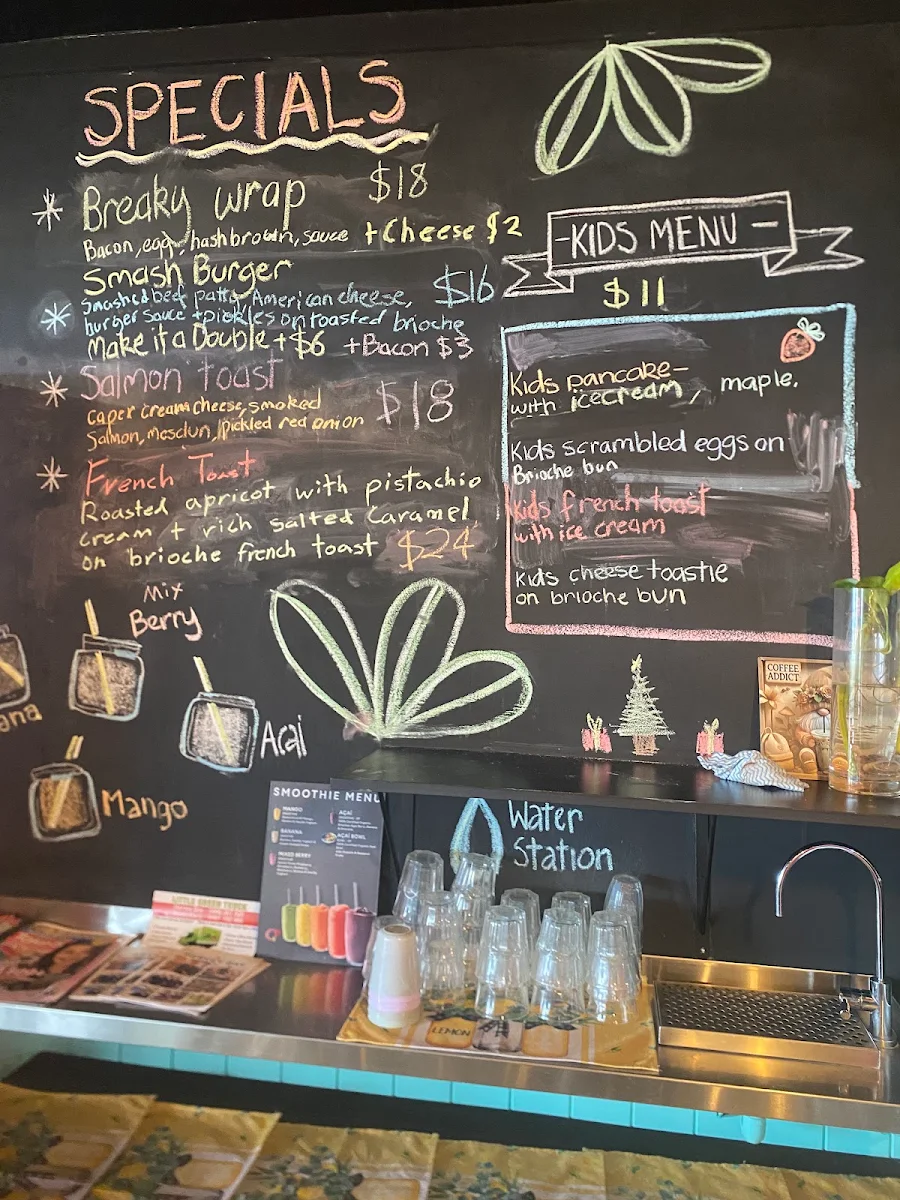 SPECIALS
Breaky wrap $18
Bacon, egg, hashbrown, sauce + Cheese $2
Smash Burger
Smashed beef patty, American cheese, $16
burger sauce + pickles on toasted brioche
Make it a Double + $6 + Bacon $3
Salmon toast
caper cream cheese, smoked $18
Salmon, mesclun, pickled red onion
French Toast
Roasted apricot with pistachio
cream + rich salted caramel
on brioche french toast $24
-KIDS MENU-
$11
Kids pancake-
with icecream, maple.
Kids scrambled eggs on
Brioche bun
Kids french toast
with ice cream
Kids cheese toastie
on brioche bun
Mix
Berry
ana
Acai
Mango
COFFEE
ADDICT
SMOOTHIE MENU
MANGO
BANANA
MIXED BERRY
AÇAÍ
AÇAÍ BOWL
Water
Station
LITTLE GREEN TRUCK
LEMON